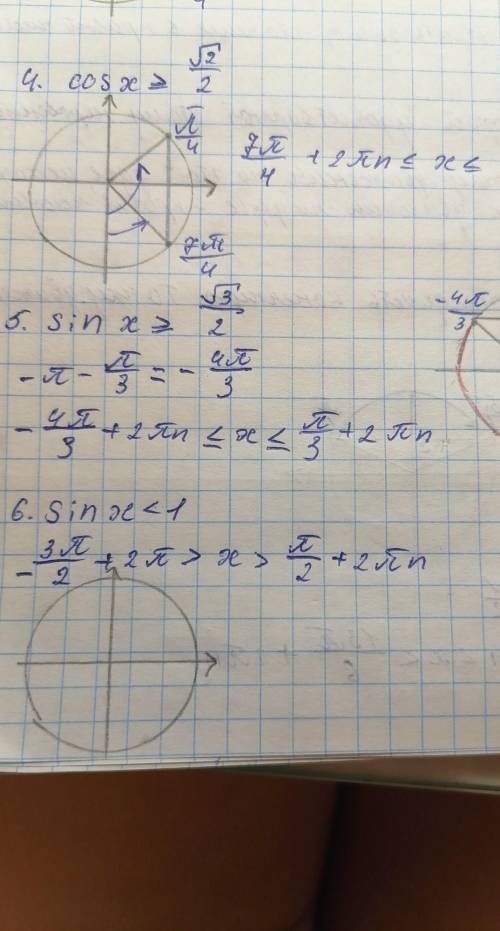 4. cos x ≥ √2/2
π/4
7π/4 + 2πn ≤ x ≤
7π/4
5. sin x ≥ √3/2
-4π/3
-π - π/3 = -4π/3
-4π/3 + 2πn ≤ x ≤ π/3 + 2πn
6. sin x < 1
-3π/2 + 2π > x > π/2 + 2πn